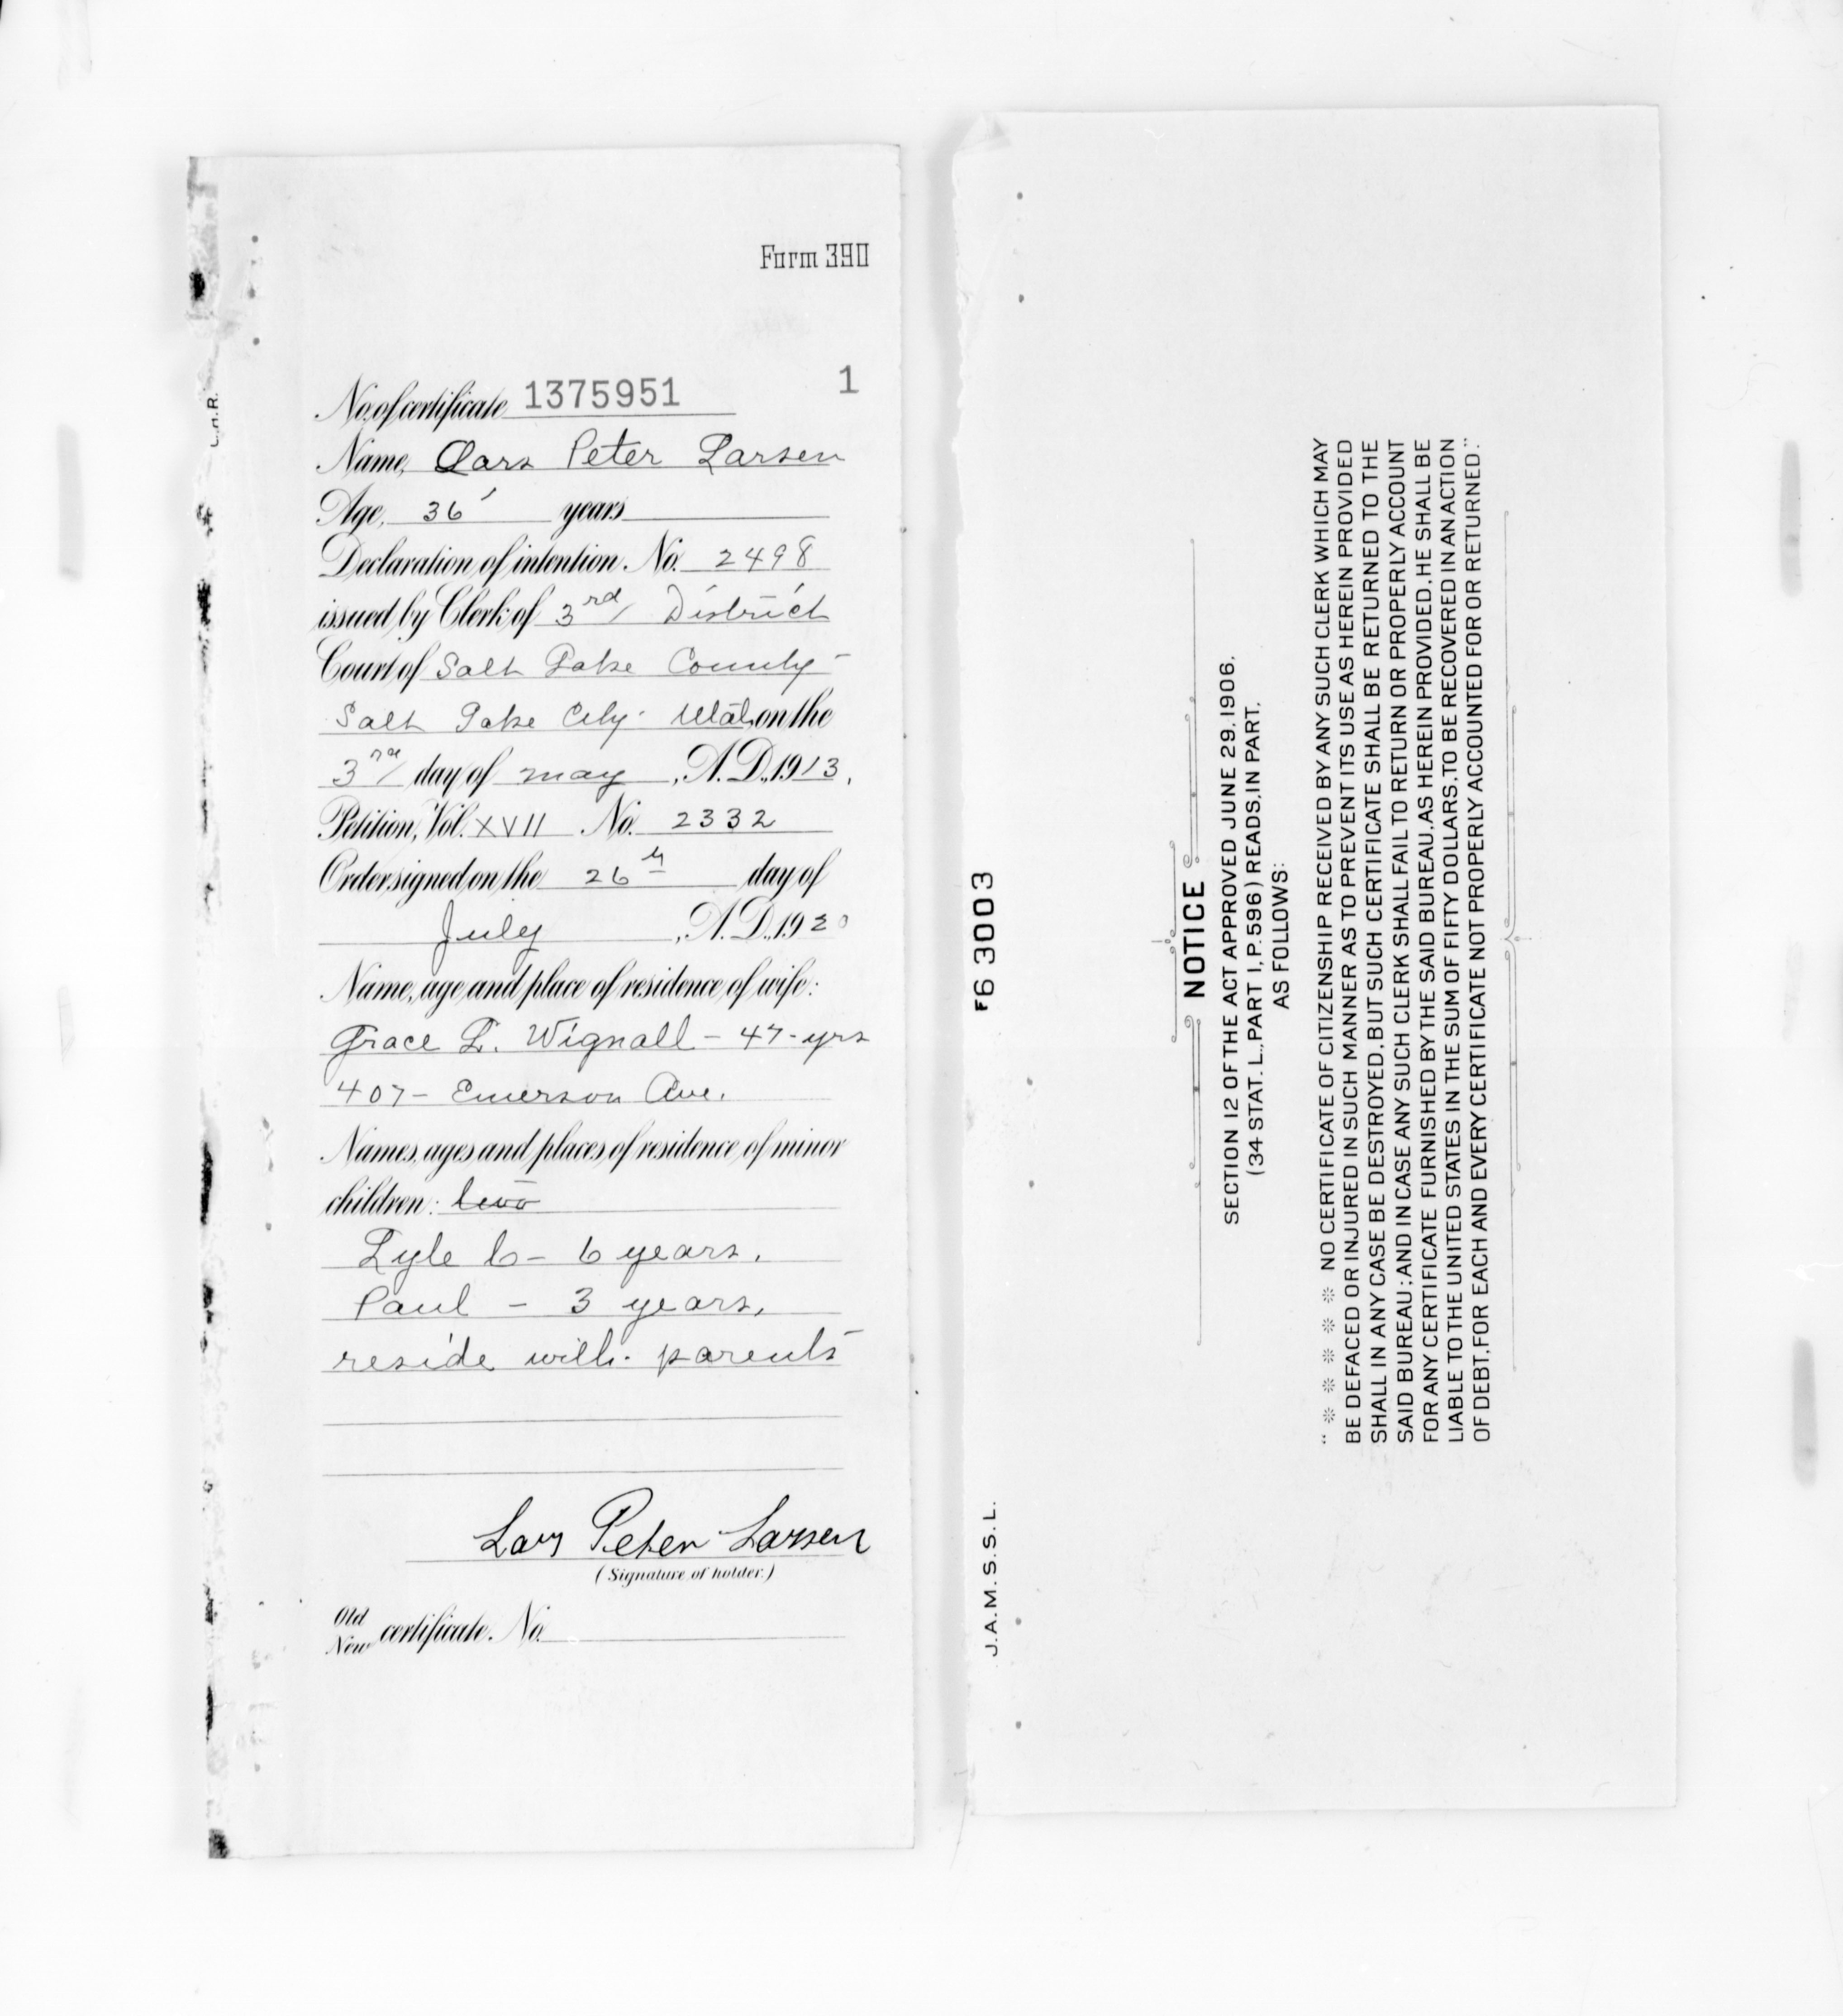 Form 390
No. of certificate 1375951 1
Name, Lars Peter Larsen
Age, 36 years
Declaration of intention No. 2498
issued by Clerk of 3rd District
Court of Salt Lake County
Salt Lake City Utah on the
3rd day of May, A.D., 1913.
Petition, Vol. XVII No. 2332
Order signed on the 26th day of
July, A.D., 1920
Name, age and place of residence of wife:
Grace L. Wignall - 47- yrs
407- Emerson Ave.
Names, ages and places of residence of minor
children: two
Lyle C - 6 years.
Paul - 3 years,
reside with parents
Lars Peter Larsen
(Signature of holder.)
Old
New certificate. No.
L.H.R.
F6 3003
J.A.M.S.S.L.
NOTICE
SECTION 12 OF THE ACT APPROVED JUNE 29, 1906.
(34 STAT. L., PART I, P. 596) READS, IN PART,
AS FOLLOWS:
" * * * * * NO CERTIFICATE OF CITIZENSHIP RECEIVED BY ANY SUCH CLERK WHICH MAY
BE DEFACED OR INJURED IN SUCH MANNER AS TO PREVENT ITS USE AS HEREIN PROVIDED
SHALL IN ANY CASE BE DESTROYED, BUT SUCH CERTIFICATE SHALL BE RETURNED TO THE
SAID BUREAU; AND IN CASE ANY SUCH CLERK SHALL FAIL TO RETURN OR PROPERLY ACCOUNT
FOR ANY CERTIFICATE FURNISHED BY THE SAID BUREAU, AS HEREIN PROVIDED, HE SHALL BE
LIABLE TO THE UNITED STATES IN THE SUM OF FIFTY DOLLARS, TO BE RECOVERED IN AN ACTION
OF DEBT, FOR EACH AND EVERY CERTIFICATE NOT PROPERLY ACCOUNTED FOR OR RETURNED."